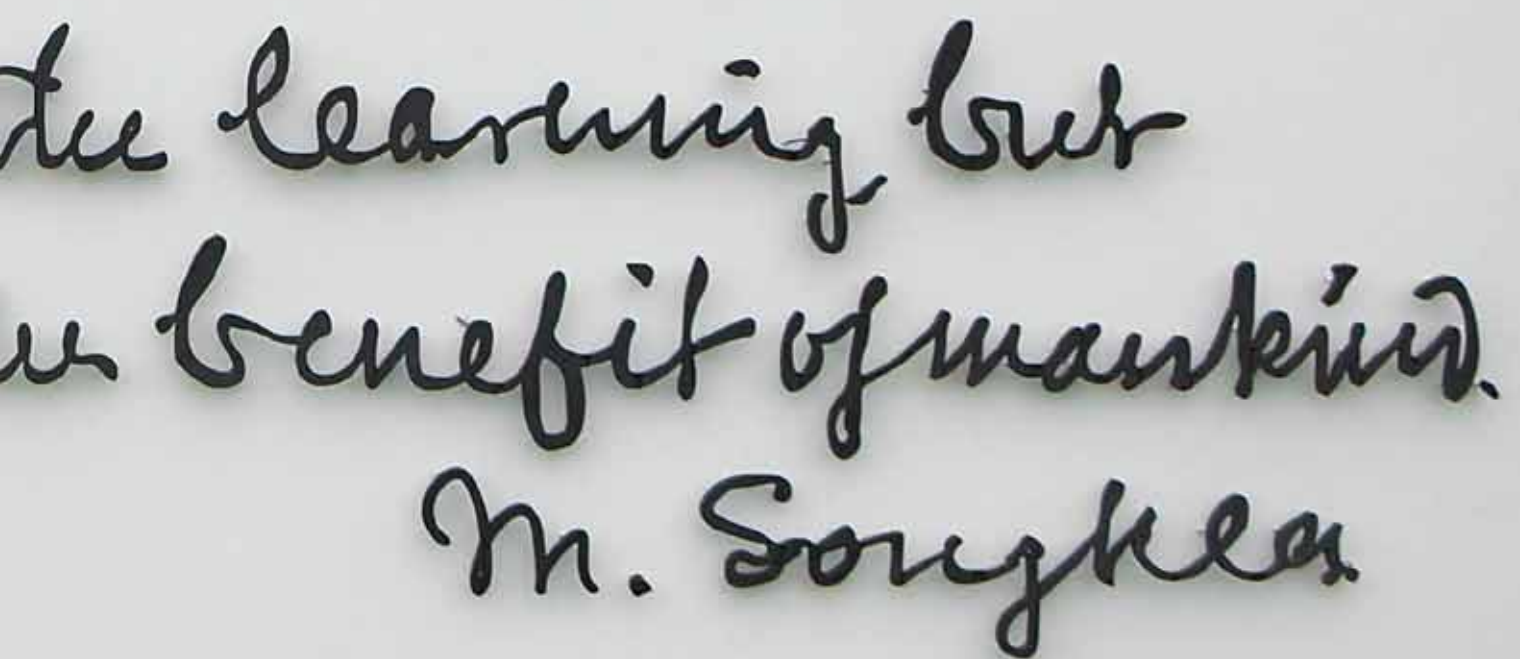 the learning but
benefit of mankind.
M. Songkla